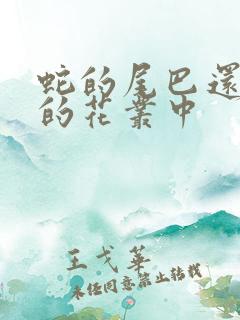 蛇的尾巴還
的花叢中
王戈華
未經同意禁止轉載